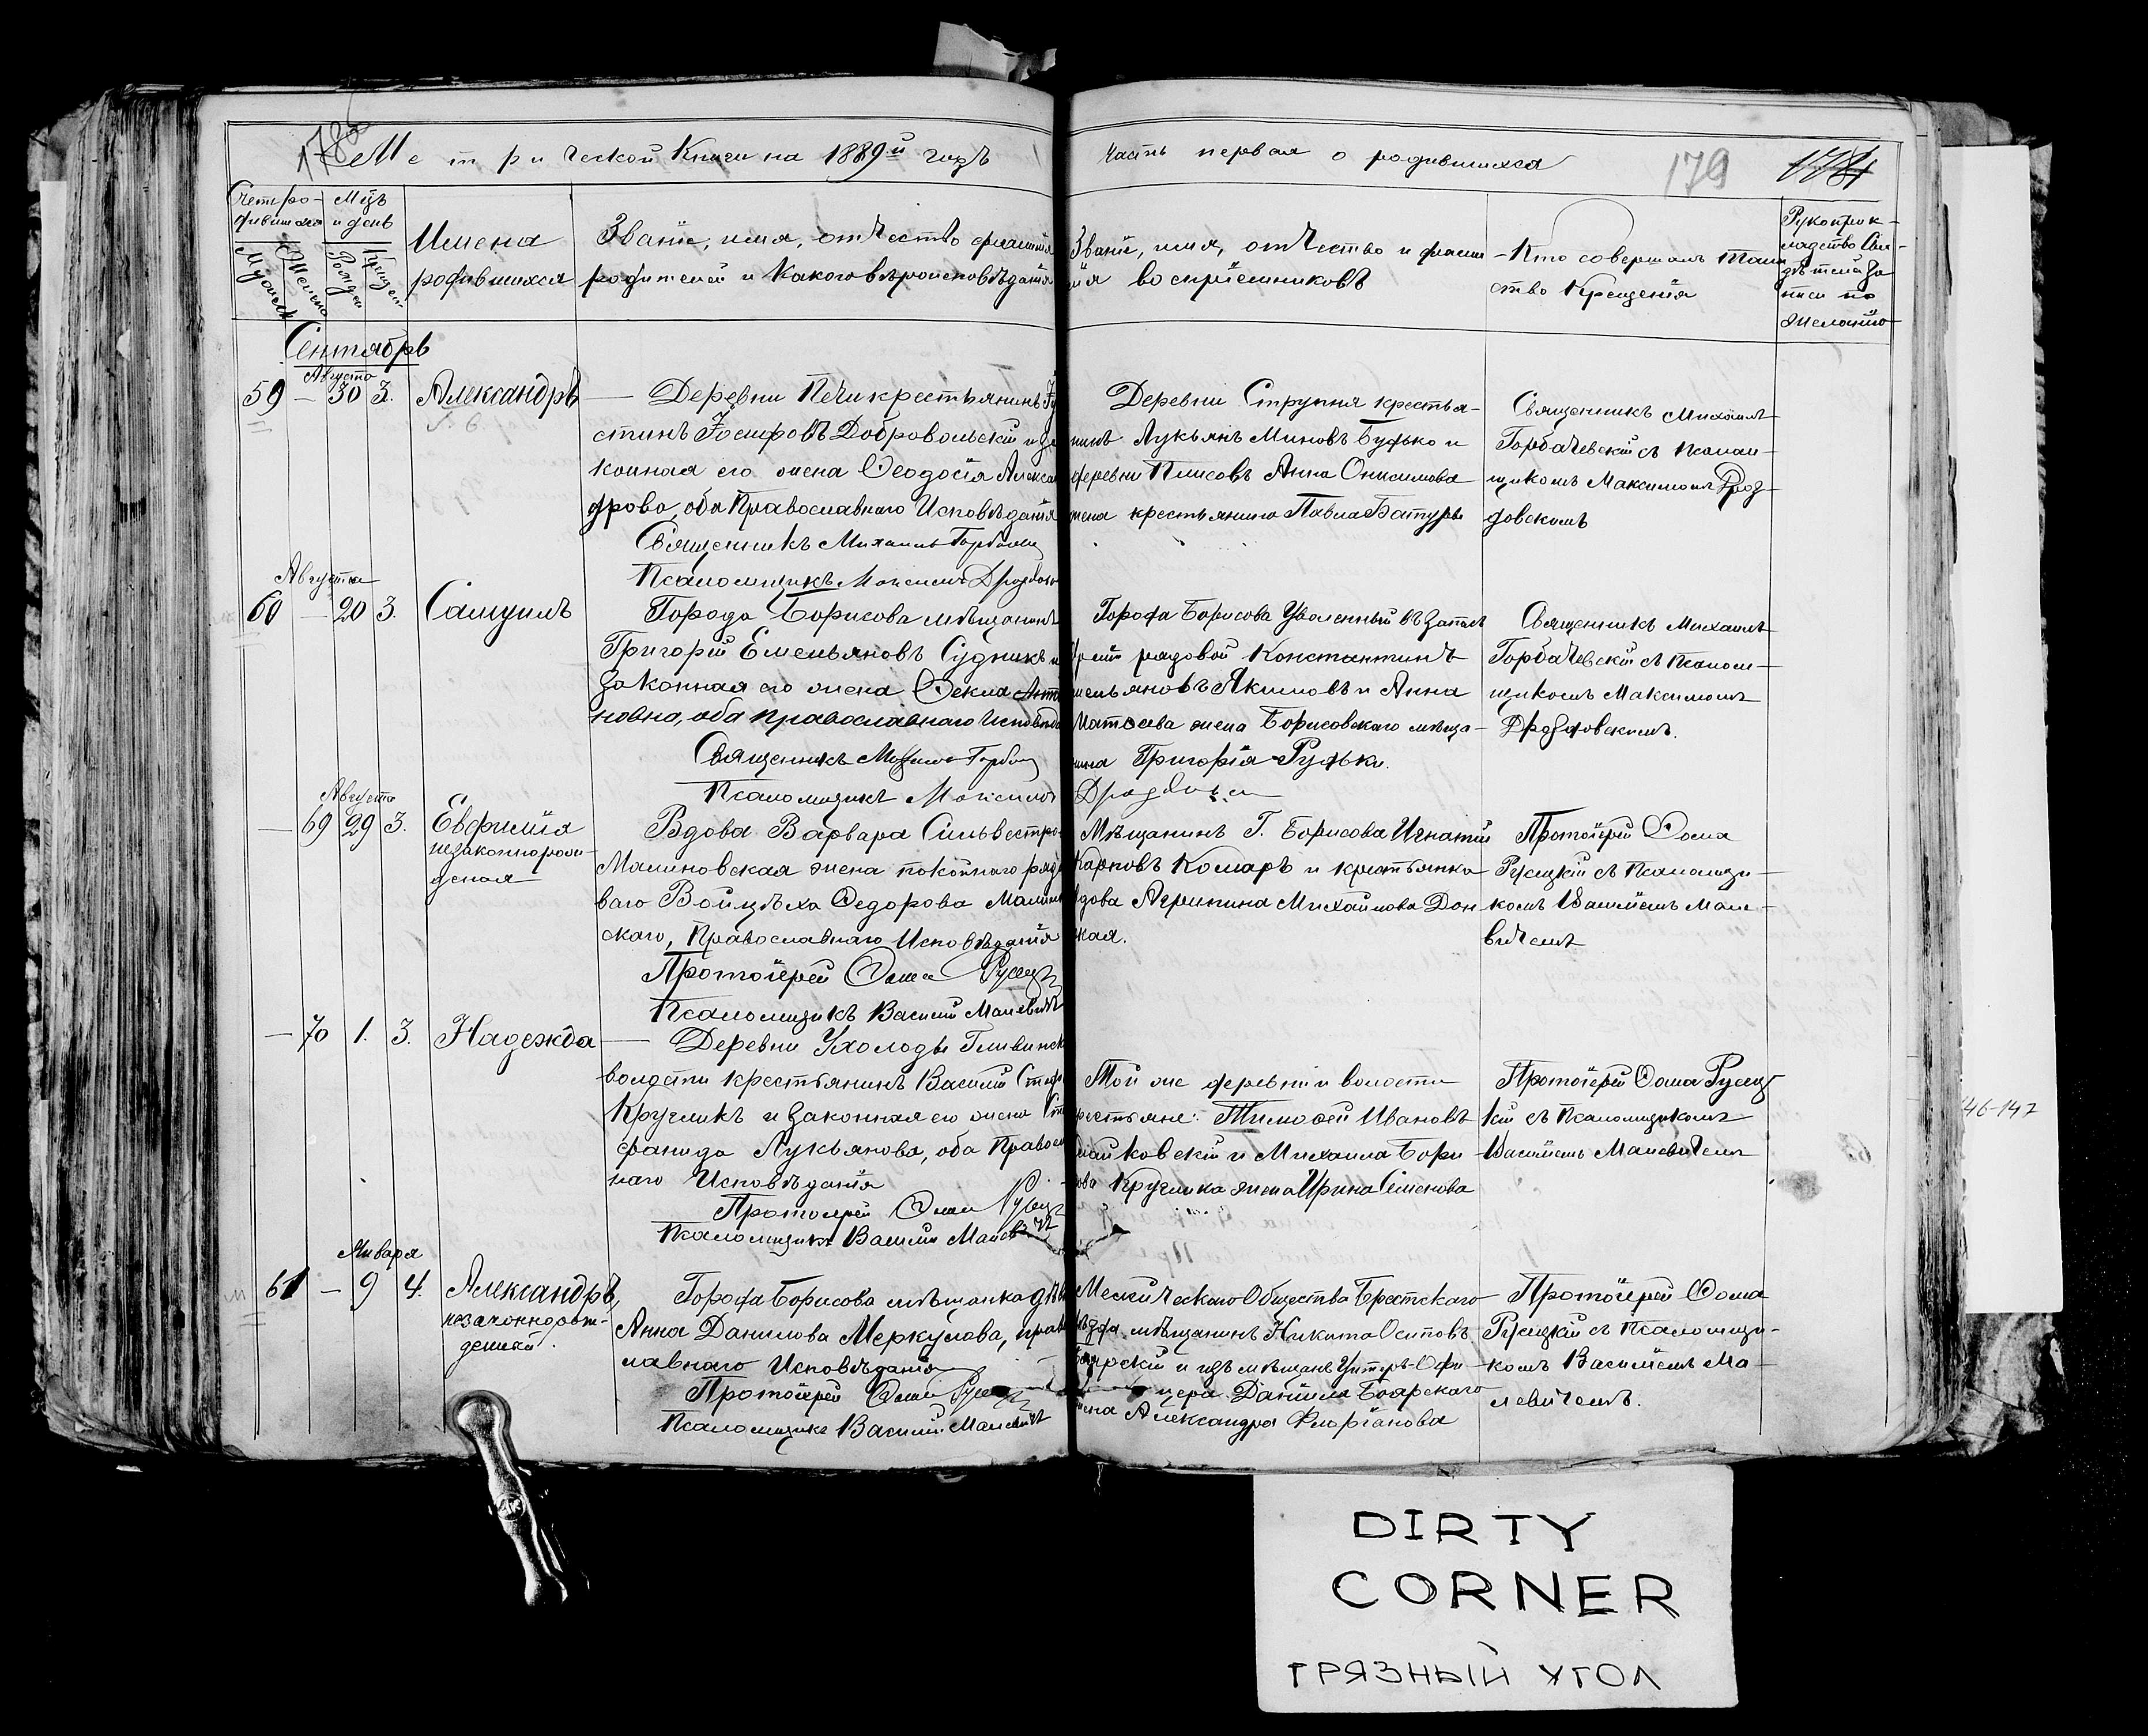 Метрической Книги на 1889й годъ
Часть первая о родившихся
179
Счетъ ро-
дившихся
Мцъ
и день
Имена
родившихся
Званіе, имя, отчество фамилія
родителей и какого вѣроисповѣданія
Званіе, имя, отчество и фамил-
ія воспріемниковъ
Кто совершалъ таин
ство Крещенія
Рукоприк-
ладство Сви-
дѣтелей за
писи по
желанію
Сентябрь
Августа
59 — 30 3. Александръ
— Деревни Печи крестьянинъ Іу
стинъ Іосифовъ Добровольскій и за
конная его жена Ѳеодосія Алексан
дрова, оба Православнаго Исповѣданія
Священникъ Михаилъ Горбаче
Псаломщикъ Максимъ Дроздов
Деревни Струпня крестья-
нинъ Лукьянъ Миновъ Будько и
деревни Плисовъ Анна Онисимова
жена крестьянина Павла Батуры
Священникъ Михаилъ
Горбачевскій съ псалом-
щикомъ Максимомъ Дроз-
довскимъ
Августа
60 — 20 3. Самуилъ
Города Борисова мѣщанинъ
Григорій Емельяновъ Судникъ и
законная его жена Ѳекла Анто
новна, оба православнаго исповѣда
Священникъ Михаилъ Горба
Псаломщикъ Максимъ
Города Борисова Уволенный въ запасъ
Арміи рядовой Константинъ
мельяновъ Якимовъ и Анна
Матѳеева жена Борисовскаго мѣща-
нина Григорія Рудьки.
Дроздовск
Священникъ Михаилъ
Горбачевскій съ псалом-
щикомъ Максимомъ
Дроздовскимъ.
Августа
— 69 29 3. Евфимія
незаконнорож-
деная
Вдова Варвара Сильвестро-
Малиновская жена покойнаго рядо
ваго Войцѣха Ѳедорова Малинов
скаго, Православнаго Исповѣданія
Протоіерей Ѳома Русец
Псаломщикъ Василій Малевичъ
Мѣщанинъ Г. Борисова Игнатій
Карповъ Комаръ и крестьянка
вдова Агрипина Михайлова Дон
ская.
Протоіерей Ѳома
Русецкій съ Псаломщи-
комъ Василіемъ Мале-
вичемъ
— 70 1. 3. Надежда
— Деревни Ухолоды Гливинск
волости крестьянинъ Василій Стеф
Кругликъ и законная его жена Сте
фанида Лукьянова, оба Правосл
наго Исповѣданія
Протоіерей Ѳома Русец
Псаломщикъ Василій Малевичъ
Той же деревни и волости
рестьяне: Тимоѳей Ивановъ
ковскій и Михаила Бори
ова Круглика жена Ирина Семенова
Протоіерей Ѳома Русец
кій съ Псаломщикомъ
Василіемъ Малевичемъ
Января
61 — 9 4. Александръ,
незаконнорож-
денный.
Города Борисова мѣщанка дѣв
Анна Данилова Меркулова, право
лавнаго Исповѣданія
Протоіерей Ѳома Русец
Псаломщикъ Василій Малевичъ
Общества Брестскаго
ѣзда мѣщанинъ Никита Осиповъ
Боярскій и изъ мѣщанъ Унтеръ-Офи-
цера Даніила Боярскаго
жена Александра Флоріанова
Протоіерей Ѳома
Русецкій съ Псаломщи-
комъ Василіемъ Ма-
левичемъ.
46-147
DIRTY
CORNER
ГРЯЗНЫЙ УГОЛ